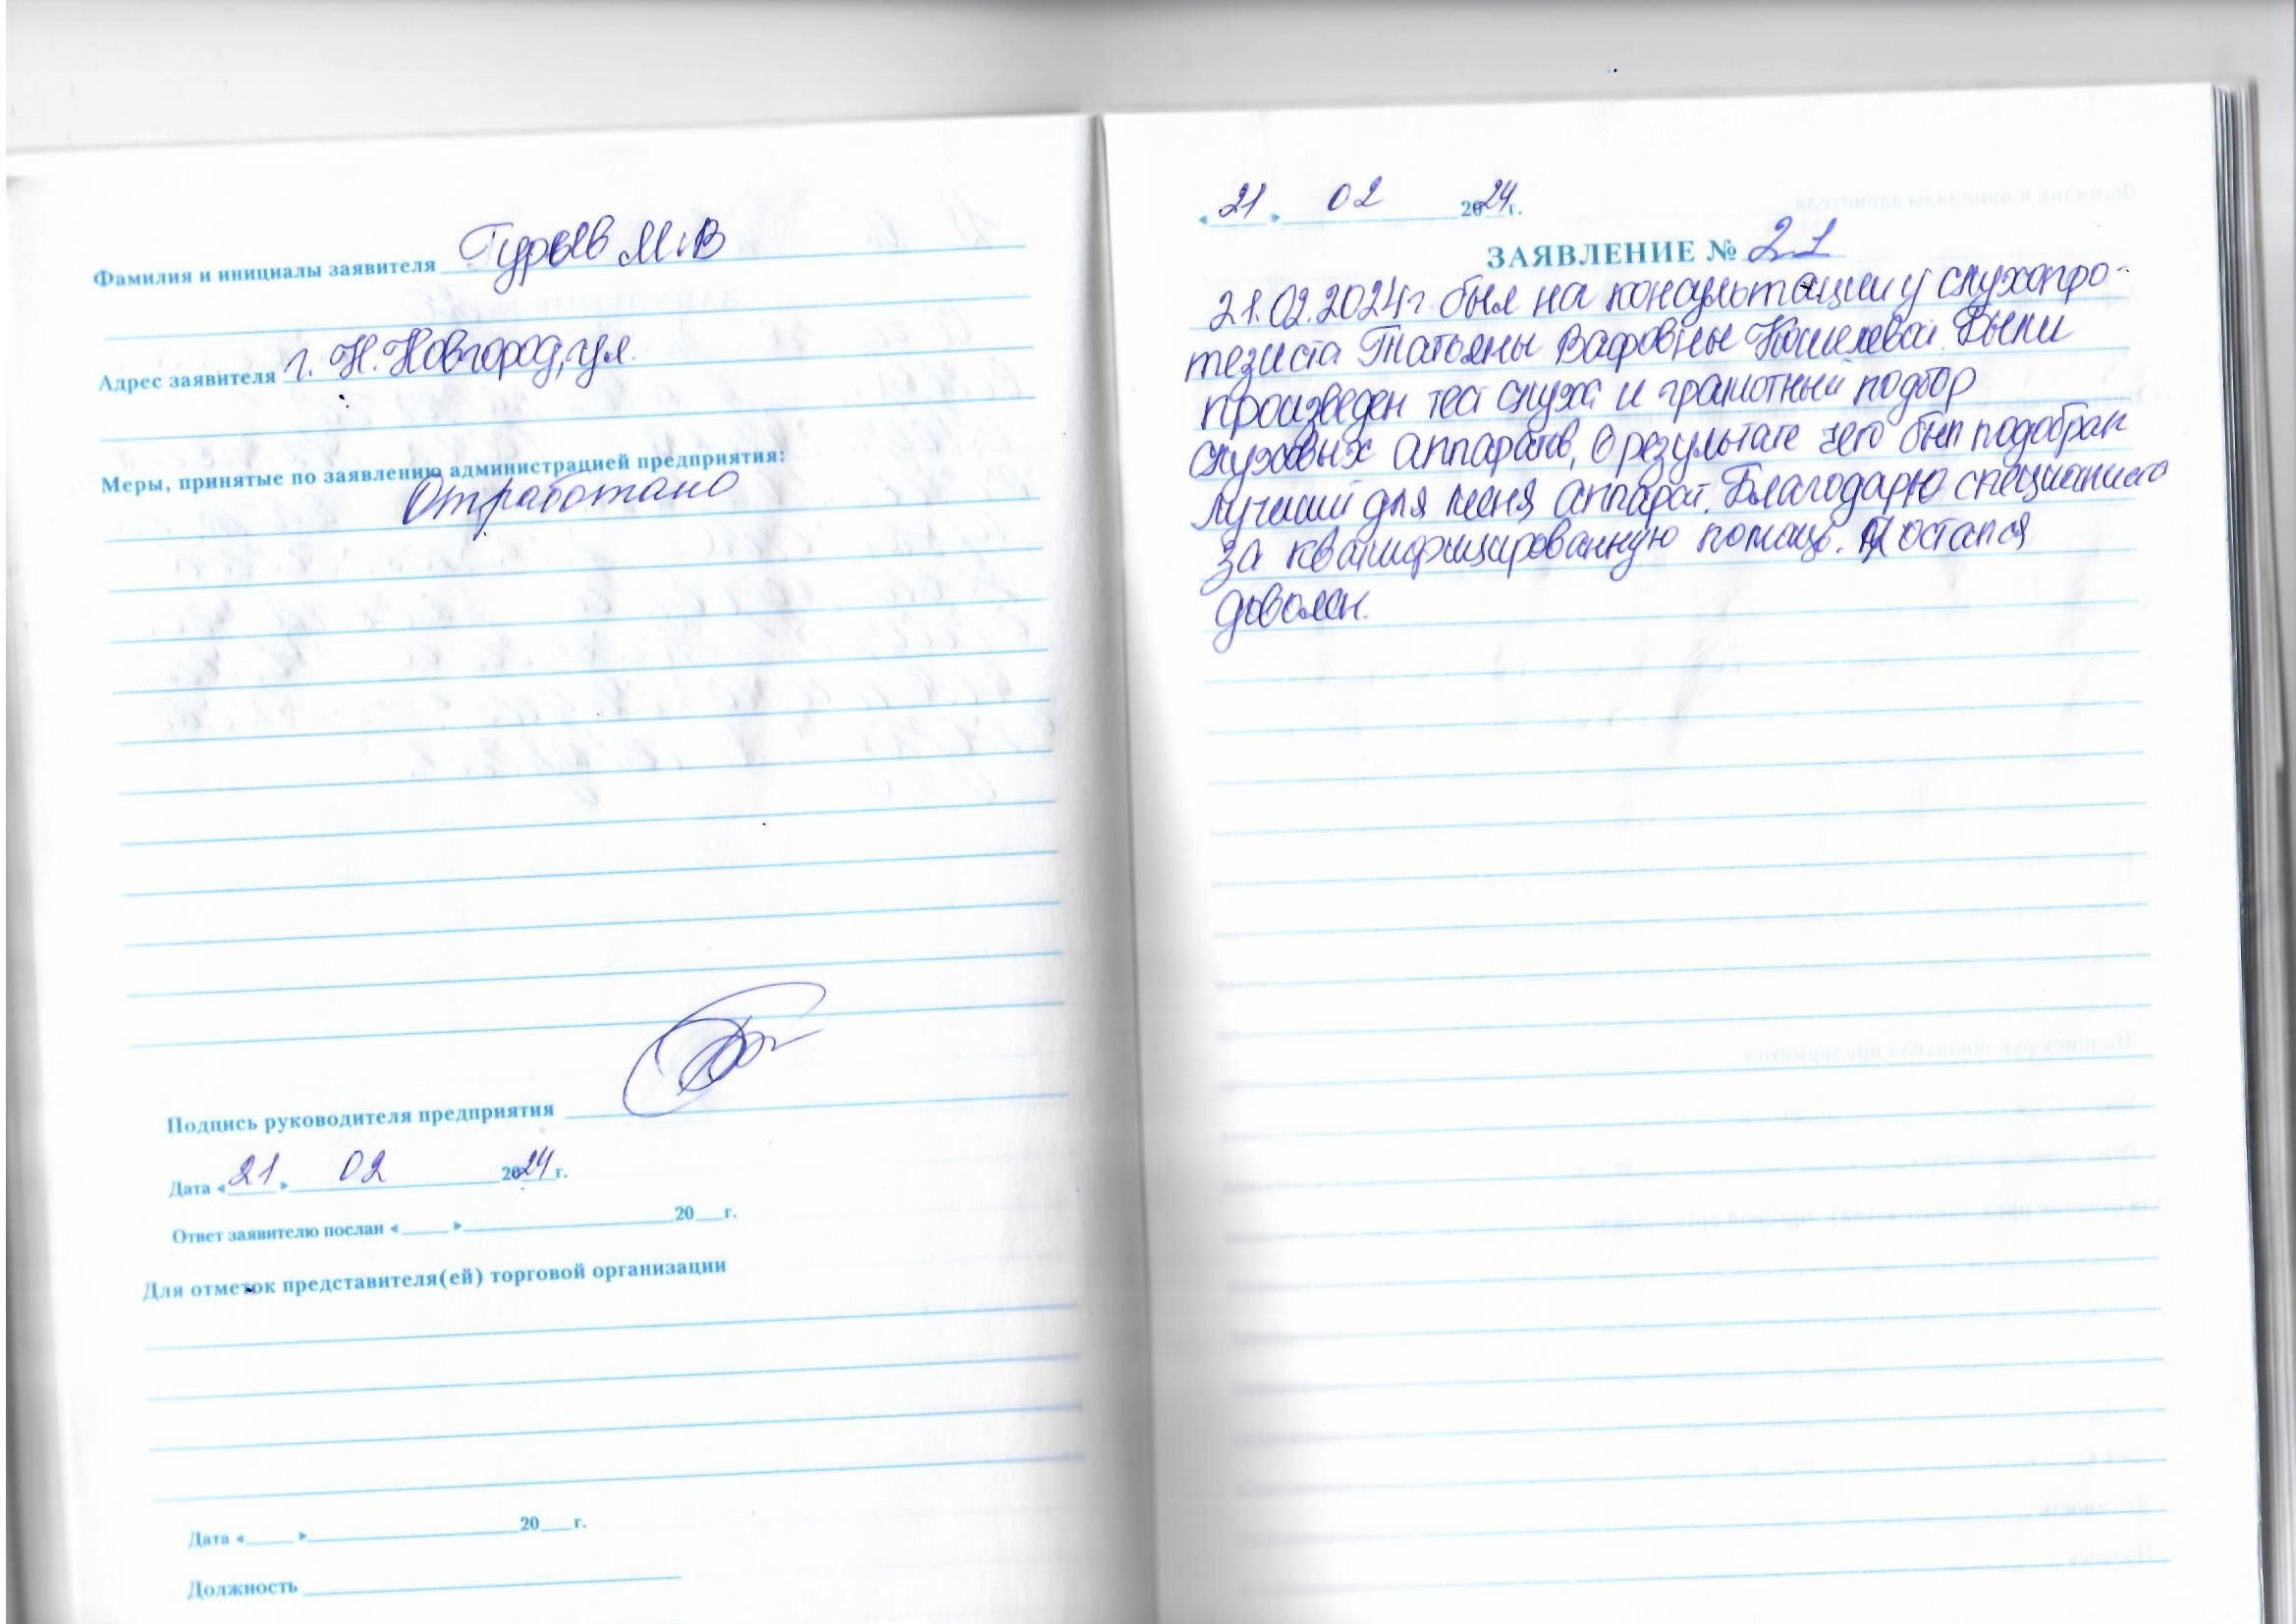 Фамилия и инициалы заявителя Гурьев М.В
Адрес заявителя г. Н.Новгород, ул.
Меры, принятые по заявлению администрацией предприятия:
Отработано
Подпись руководителя предприятия
Дата «21» 02 2024 г.
Ответ заявителю послан «____» ____ 20__г.
Для отметок представителя(ей) торговой организации
Дата «____» ____ 20__г.
Должность
«21» 02 2024г.
ЗАЯВЛЕНИЕ № 21
21.02.2024г. был на консультации у слухопро-
тезиста Татьяны Вафовны Кошелевой. Были
произведен тест слуха и грамотный подбор
слуховых аппаратов, в результате чего был подобран
лучший для меня аппарат. Благодарю специалиста
за квалифицированную помощь. Я остался
доволен.